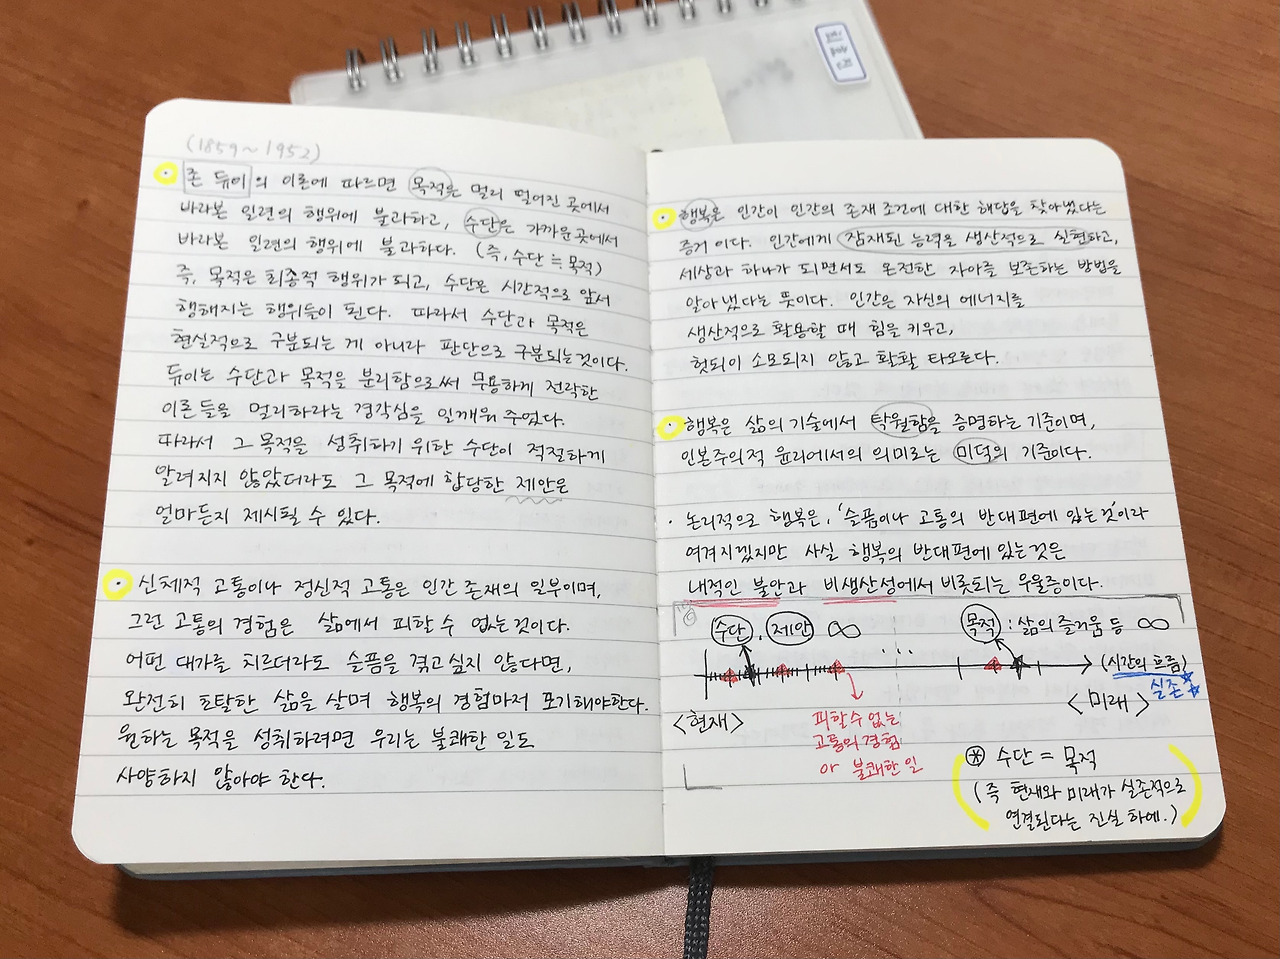 (1859~1952)
존 듀이의 이론에 따르면 목적은 멀리 떨어진 곳에서
바라본 일련의 행위에 불과하고, 수단은 가까운 곳에서
바라본 일련의 행위에 불과하다. (즉, 수단 ≒ 목적)
즉, 목적은 최종적 행위가 되고, 수단은 시간적으로 앞서
행해지는 행위들이 된다. 따라서 수단과 목적은
현실적으로 구분되는 게 아니라 판단으로 구분되는것이다.
듀이는 수단과 목적을 분리함으로써 무용하게 전락한
이론들을 멀리하라는 경각심을 일깨워 주었다.
따라서 그 목적을 성취하기 위한 수단이 적절하게
알려지지 않았더라도 그 목적에 합당한 제안은
얼마든지 제시될 수 있다.
신체적 고통이나 정신적 고통은 인간 존재의 일부이며,
그런 고통의 경험은 삶에서 피할 수 없는것이다.
어떤 대가를 치르더라도 슬픔을 겪고싶지 않다면,
완전히 초탈한 삶을 살며 행복의 경험마저 포기해야한다.
원하는 목적을 성취하려면 우리는 불쾌한 일도
사양하지 않아야 한다.
행복은 인간이 인간의 존재 조건에 대한 해답을 찾아냈다는
증거이다. 인간에게 잠재된 능력을 생산적으로 실현하고,
세상과 하나가 되면서도 온전한 자아를 보존하는 방법을
알아냈다는 뜻이다. 인간은 자신의 에너지를
생산적으로 활용할 때 힘을 키우고,
헛되이 소모되지 않고 활활 타오른다.
행복은 삶의 기술에서 탁월함을 증명하는 기준이며,
인본주의적 윤리에서의 의미로는 미덕의 기준이다.
· 논리적으로 행복은, '슬픔이나 고통의 반대편에 있는것'이라
여겨지겠지만 사실 행복의 반대편에 있는것은
내적인 불안과 비생산성에서 비롯되는 우울증이다.
수단, 제안 ∞ ... 목적 : 삶의 즐거움 등 ∞
(시간의 흐름)
실존
<현재> <미래>
피할수없는
고통의경험
or 불쾌한일
⊛ 수단 = 목적
(즉 현재와 미래가 실존적으로
연결된다는 진실 하에.)